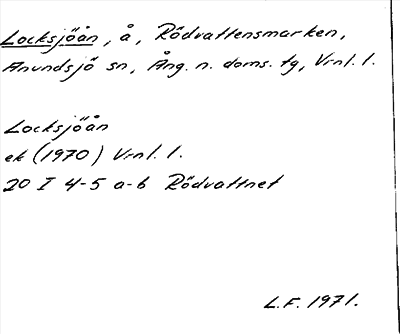 Locksjöån, å, Rödvattensmarken,
Anundsjö sn, Ång. n. doms. tg, Vrnl. l.
Locksjöån
ek (1970) Vrnl. l.
20 I 4-5 a-b Rödvattnet
L.F. 1971.